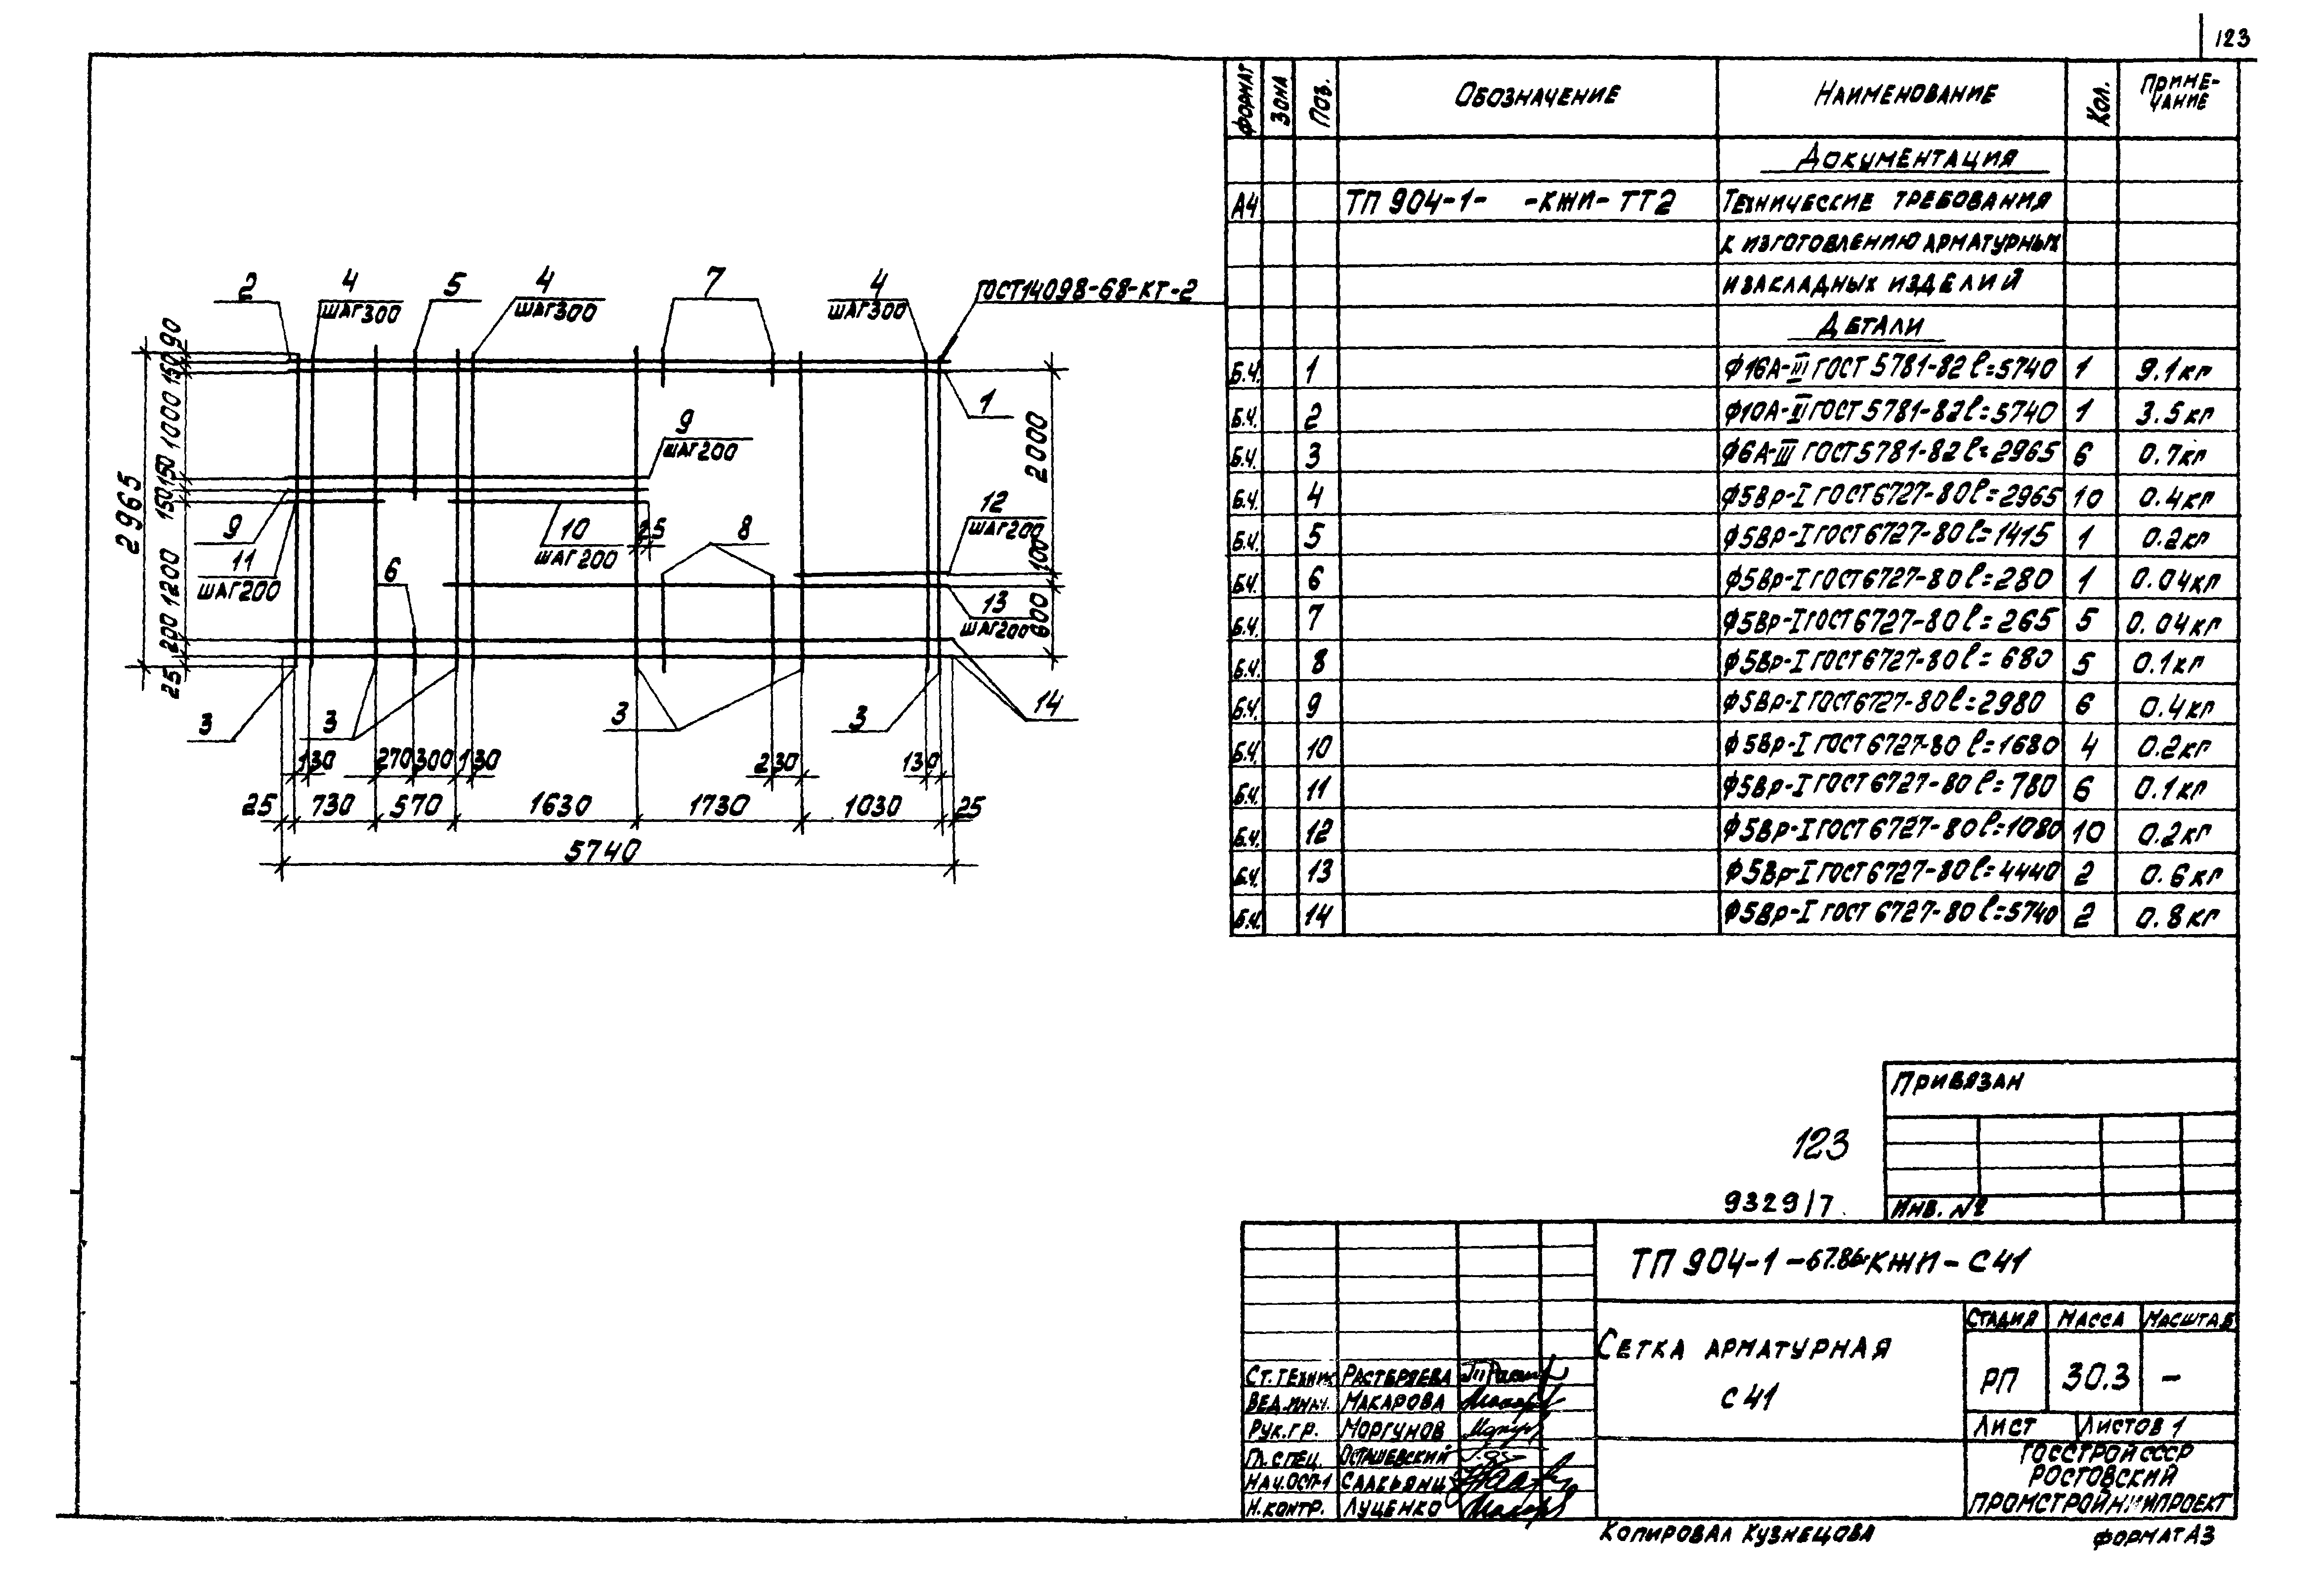 123
ФОРМАТ ЗОНА ПОЗ. ОБОЗНАЧЕНИЕ НАИМЕНОВАНИЕ КОЛ. ПРИМЕ-
ЧАНИЕ
ДОКУМЕНТАЦИЯ
А4 ТП 904-1- -КЖИ-ТТ2 ТЕХНИЧЕСКИЕ ТРЕБОВАНИЯ
К ИЗГОТОВЛЕНИЮ АРМАТУРНЫХ
И ЗАКЛАДНЫХ ИЗДЕЛИЙ
ДЕТАЛИ
Б.Ч. 1 Ф16А-III ГОСТ 5781-82 ℓ=5740 1 9.1кг
Б.Ч. 2 Ф10А-III ГОСТ 5781-82 ℓ=5740 1 3.5кг
Б.Ч. 3 Ф6А-III ГОСТ 5781-82 ℓ=2965 6 0.7кг
Б.Ч. 4 Ф5Вр-I ГОСТ 6727-80 ℓ=2965 10 0.4кг
Б.Ч. 5 Ф5Вр-I ГОСТ 6727-80 ℓ=1415 1 0.2кг
Б.Ч. 6 Ф5Вр-I ГОСТ 6727-80 ℓ=280 1 0.04кг
Б.Ч. 7 Ф5Вр-I ГОСТ 6727-80 ℓ=265 5 0.04кг
Б.Ч. 8 Ф5Вр-I ГОСТ 6727-80 ℓ=680 5 0.1кг
Б.Ч. 9 Ф5Вр-I ГОСТ 6727-80 ℓ=2980 6 0.4кг
Б.Ч. 10 Ф5Вр-I ГОСТ 6727-80 ℓ=1680 4 0.2кг
Б.Ч. 11 Ф5Вр-I ГОСТ 6727-80 ℓ=780 6 0.1кг
Б.Ч. 12 Ф5Вр-I ГОСТ 6727-80 ℓ=1080 10 0.2кг
Б.Ч. 13 Ф5Вр-I ГОСТ 6727-80 ℓ=4440 2 0.6кг
Б.Ч. 14 Ф5Вр-I ГОСТ 6727-80 ℓ=5740 2 0.8кг
2 4 5 4 7 4 ГОСТ14098-68-КТ-2
ШАГ300 ШАГ300 ШАГ300
90
150
1000
150
150
1200
200
25
2965
1
2000
9
ШАГ200
12
ШАГ200
100
9
10
ШАГ200
25
8
11
ШАГ200
6
13
ШАГ200
600
3 3 3 3 14
130 270 300 130 230 130
25 730 570 1630 1730 1030 25
5740
ПРИВЯЗАН
123
9329/7
ИНВ. №
ТП 904-1-67.86-КЖИ-С41
СЕТКА АРМАТУРНАЯ
С41
СТАДИЯ МАССА МАСШТАБ
РП 30.3 –
ЛИСТ ЛИСТОВ 1
ГОССТРОЙ СССР
РОСТОВСКИЙ
ПРОМСТРОЙНИИПРОЕКТ
СТ.ТЕХНИК РАСТЕРЯЕВА
ВЕД.ИНЖ. МАКАРОВА
РУК.ГР. МОРГУНОВ
ГЛ.СПЕЦ. ОСТАШЕВСКИЙ
НАЧ.ОСП-1 СААКЬЯНЦ
Н.КОНТР. ЛУЦЕНКО
КОПИРОВАЛ КУЗНЕЦОВА ФОРМАТ А3